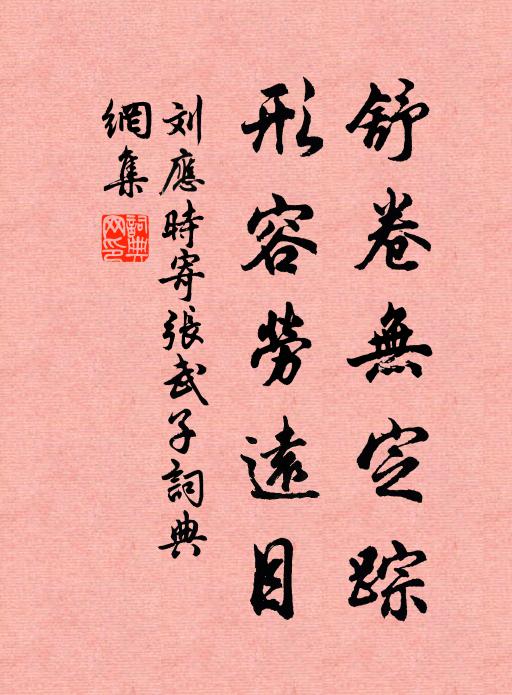 舒卷無定踪
形容勞遠目
刘應時寄張武子詞典
網集
詞典網印